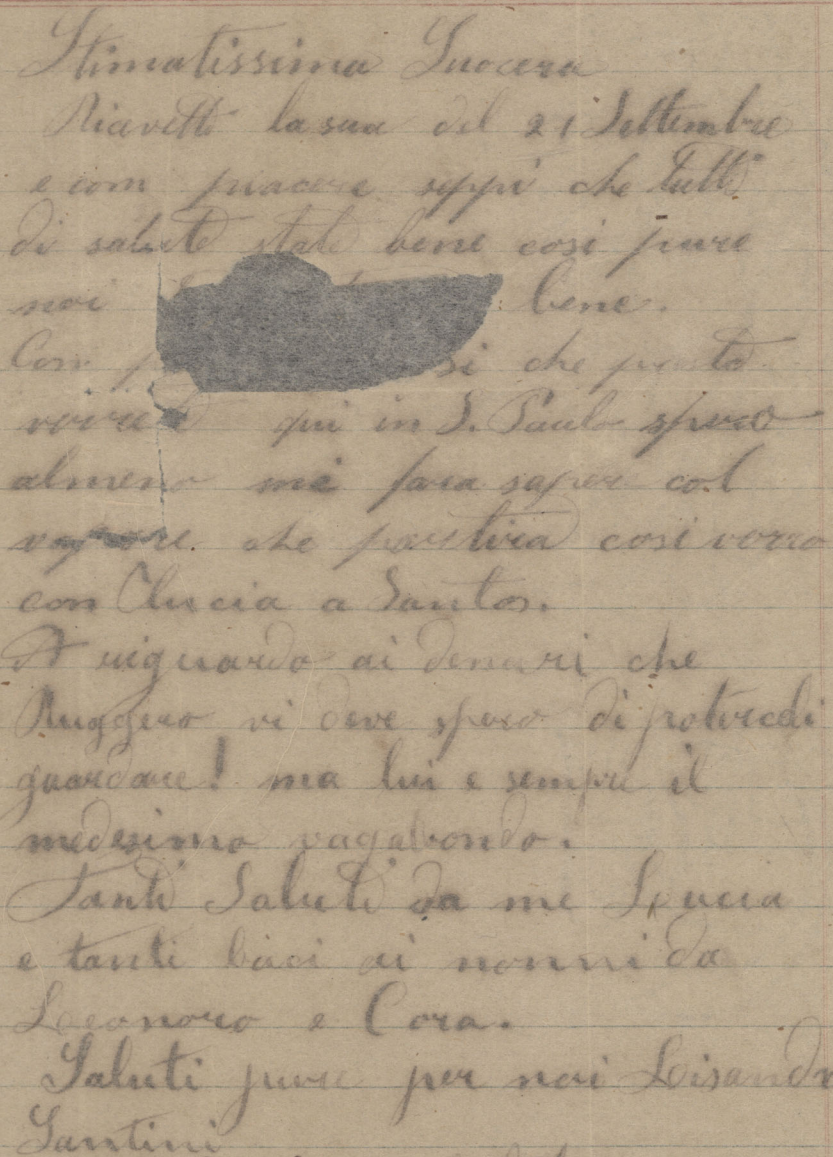 Stimatissima Suocera
Ricevetti la sua del 21 Settembre
e com piacere seppi che tutti
di salute state bene cosi pure
noi bene.
Com si che presto
verrete qui in S. Paulo spero
almeno mi fara sapere col
vapore che partira cosi verro
con Clucia a Santos.
A riguardo ai denari che
Ruggero vi deve spero di potercili
guardare! ma lui e sempre il
medesimo vagabondo.
Tanti Saluti da me Lucia
e tanti baci ai nonni da
Leonoro e Cora.
Saluti pure per noi Lisandro
Santini